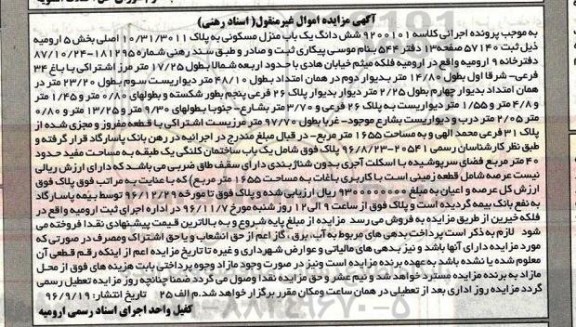 آگهی مزایده اموال غیرمنقول( اسناد رهنی)
به موجب پرونده اجرائی کلاسه 9200101 شش دانگ یک باب منزل مسکونی به پلاک 10/31/3011 اصلی بخش 5 ارومیه
ذیل ثبت 57140 صفحه 13 دفتر 544 بنام موسی پیکاری ثبت و صادر و طبق سند رهنی شماره 181295-87/10/24
دفترخانه 9 ارومیه واقع در ارومیه فلکه میثم خیابان هادی با حدود اربعه شمالا بطول 17/25 متر مرز اشتراکی با باغ 34
فرعی- شرقا اول بطول 14/80 متر بدیوار دوم در همان امتداد بطول 48/10 متر دیواریست سوم بطول 23/20 متر در
همان امتداد بدیوار چهارم بطول 2/25 متر دیوار بدیوار پلاک 26 فرعی پنجم بطور شکسته و بطولهای 0/80 متر و 1/45 متر
و 4/8 متر و 1/55 متر دیواریست به پلاک 26 فرعی و 3/70 متر بشارع- جنوبا بطولهای 9/30 متر و 13/25 متر و 0/80
متر 2/05 متر درب و دیواریست بشارع موجود- غربا بطول 97/70 متر مرزیست اشتراکی با قطعه مفروز و مجزی شده از
پلاک 31 فرعی محمد الهی و به مساحت 1655 متر مربع- در قبال مبلغ مندرج در اجرائیه در رهن بانک پاسارگاد قرار گرفته و
طبق نظر کارشناس رسمی 20541-96/8/23 پلاک فوق شامل یک باب ساختمان کلنگی یک طبقه به مساحت مفید حدود
40 متر مربع فضای سرپوشیده با اسکلت آجری بدون شناژ بندی دارای سقف طاق ضربی می باشد که دارای ارزش ریالی
نیست عرصه شامل قطعه زمینی است با کاربری باغات به مساحت 1655 متر مربع) که با عنایت به مراتب فوق پلاک فوق
ارزش کل عرصه و اعیان به مبلغ 930000000 ریال ارزیابی شده و پلاک فوق تا مورخه 96/12/29 توسط بیمه پاسارگاد
به نفع بانک بیمه گردیده است و پلاک فوق از ساعت 9 الی 12 روز شنبه مورخ 96/11/7 در اداره اجرای ثبت ارومیه واقع در
فلکه خیرین از طریق مزایده به فروش می رسد مزایده از مبلغ پایه شروع و به بالاترین قیمت پیشنهادی نقدا فروخته می
شود لازم به ذکر است پرداخت بدهی های مربوط به آب، برق، گاز اعم از حق انشعاب و یا حق اشتراک و مصرف در صورتی که
مورد مزایده دارای آنها باشد و نیز بدهی های مالیاتی و عوارض شهرداری و غیره تا تاریخ مزایده اعم از اینکه رقم قطعی آن
معلوم شده یا نشده باشد به عهده برنده مزایده است ونیز در صورت وجود مازاد وجوه پرداختی بابت هزینه های فوق از محل
مازاد به برنده مزایده مسترد خواهد شد و نیم عشر و حق مزایده نقدا وصول می گردد ضمنا چنانچه روز مزایده تعطیل رسمی
گردد مزایده روز اداری بعد از تعطیلی در همان ساعت ومکان مقرر برگزار خواهد شد.م الف 25 تاریخ انتشار: 96/9/19
کفیل واحد اجرای اسناد رسمی ارومیه